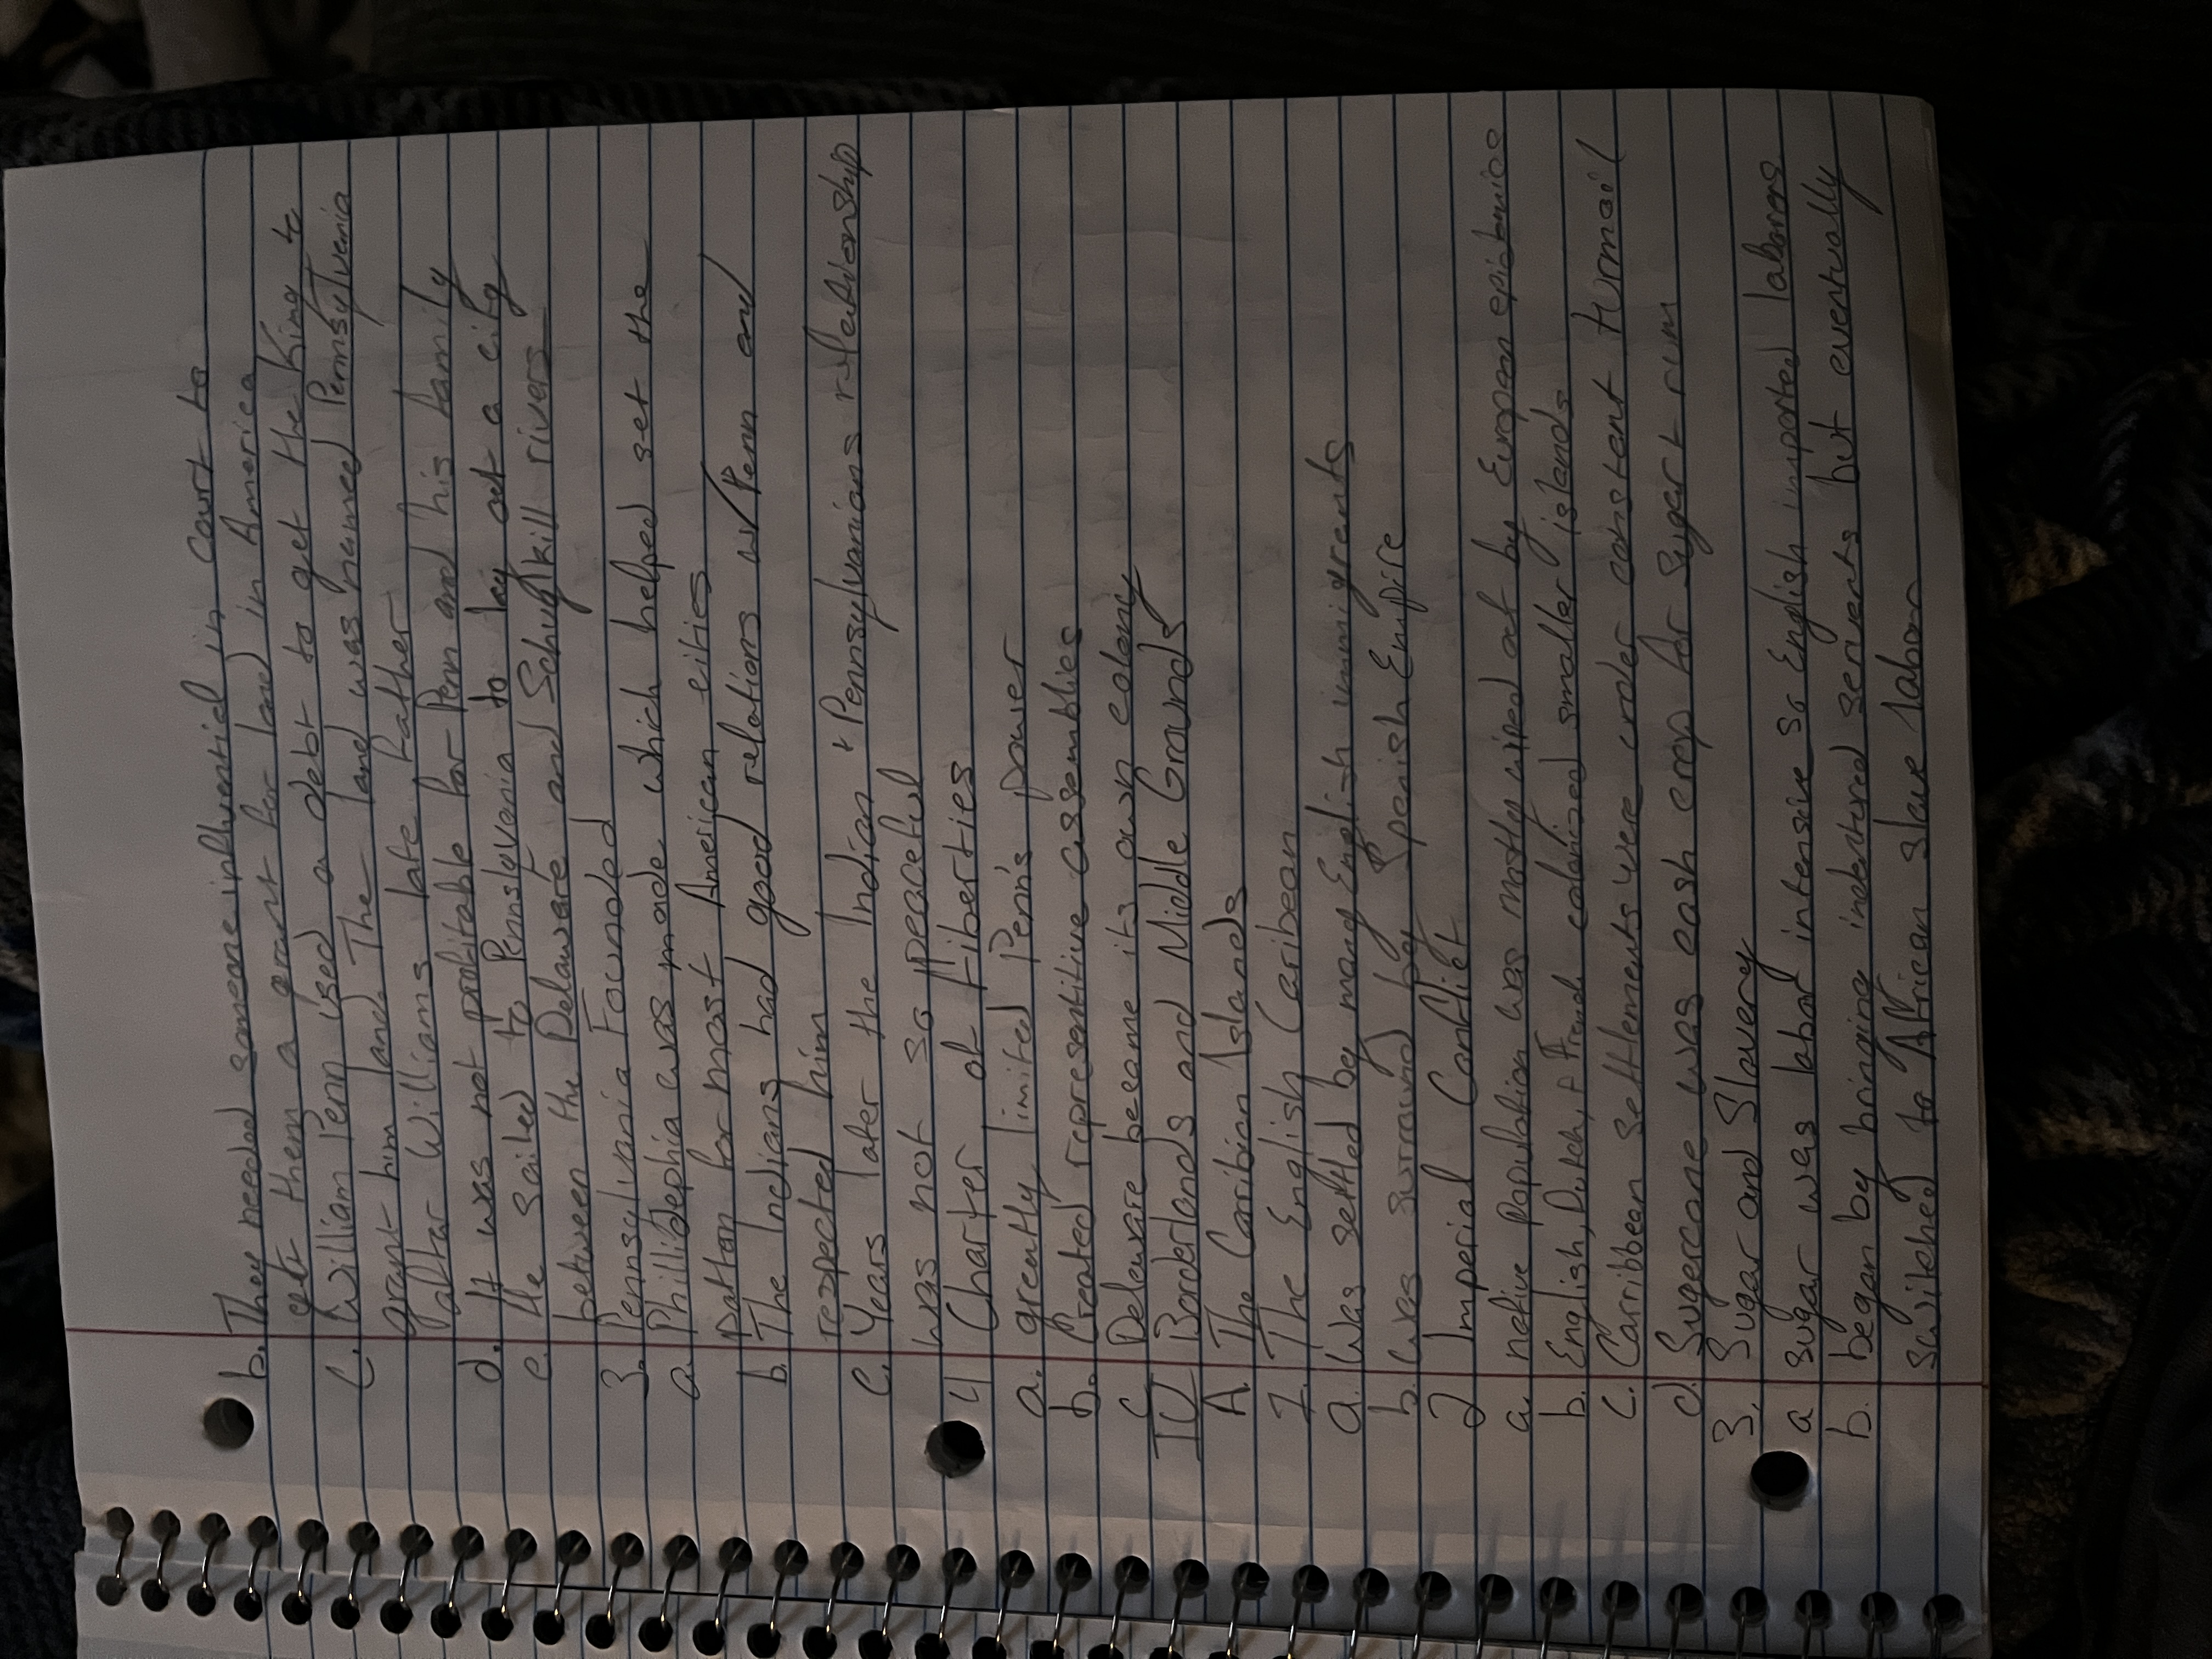 b. They needed someone influential in court to
get them a grant for land in America
c. William Penn used a debt to get the King to
grant him land. The land was named Pennsylvania
after Williams late father
d. It was not profitable for Penn and his family
e. He sailed to Pennslyvania to lay out a city
between the Delaware and Schuylkill rivers
3. Pennsylvania Founded
a. Phillidephia was made which helped set the
patton for most American cities
b. The Indians had good relations w/ Penn and
respected him
c. Years later the Indian + Pennsylvanians relationship
was not so peaceful
4 Charter of Liberties
a. greently limited Penn's power
b. Created representitive assemblies
c Delaware became its own colony
IV Borderlands and Middle Grounds
A. The Caribian Islands
1. The English Caribean
a. Was settled by many English immigrants
b. Was surround by Spanish Empire
2 Imperial Conflict
a. native population was mostly wiped out by Europan epidemics
b. English, Dutch, + French colonized smaller islands
c. Carribean settlements were under constant turmoil
d. Sugercane was cash crop for sugar + rum
3. Sugar and Slavery
a sugar was labor intensive so English imported laborers
b. began by bringing indentured servents but eventually
switched to African slave labor